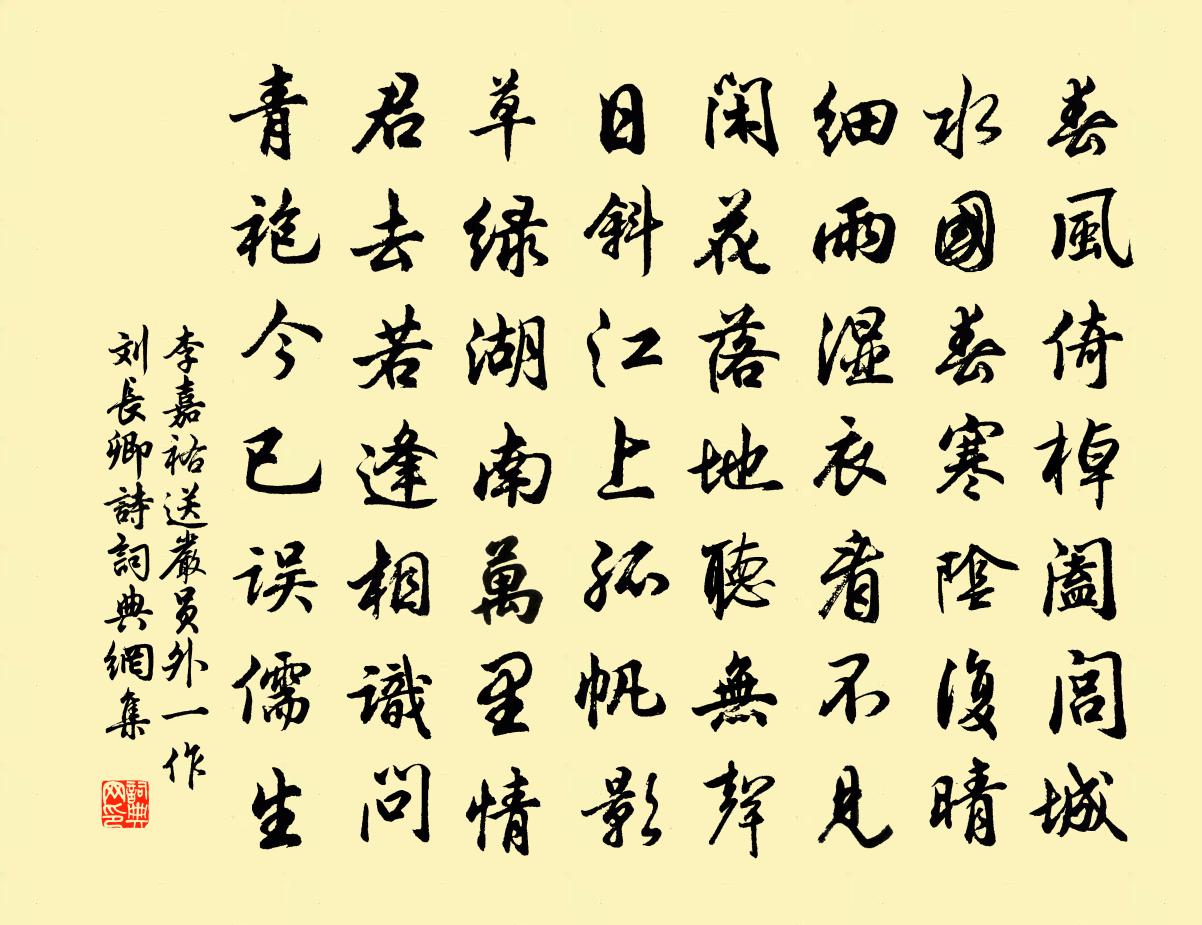 春風倚棹闔閭城
水國春寒陰復晴
細雨濕衣看不見
閑花落地聽無聲
日斜江上孤帆影
草绿湖南萬里情
君去若逢相識問
青袍今已误儒生
李嘉祐送嚴员外一作
刘長卿詩詞典網集
詞典网印